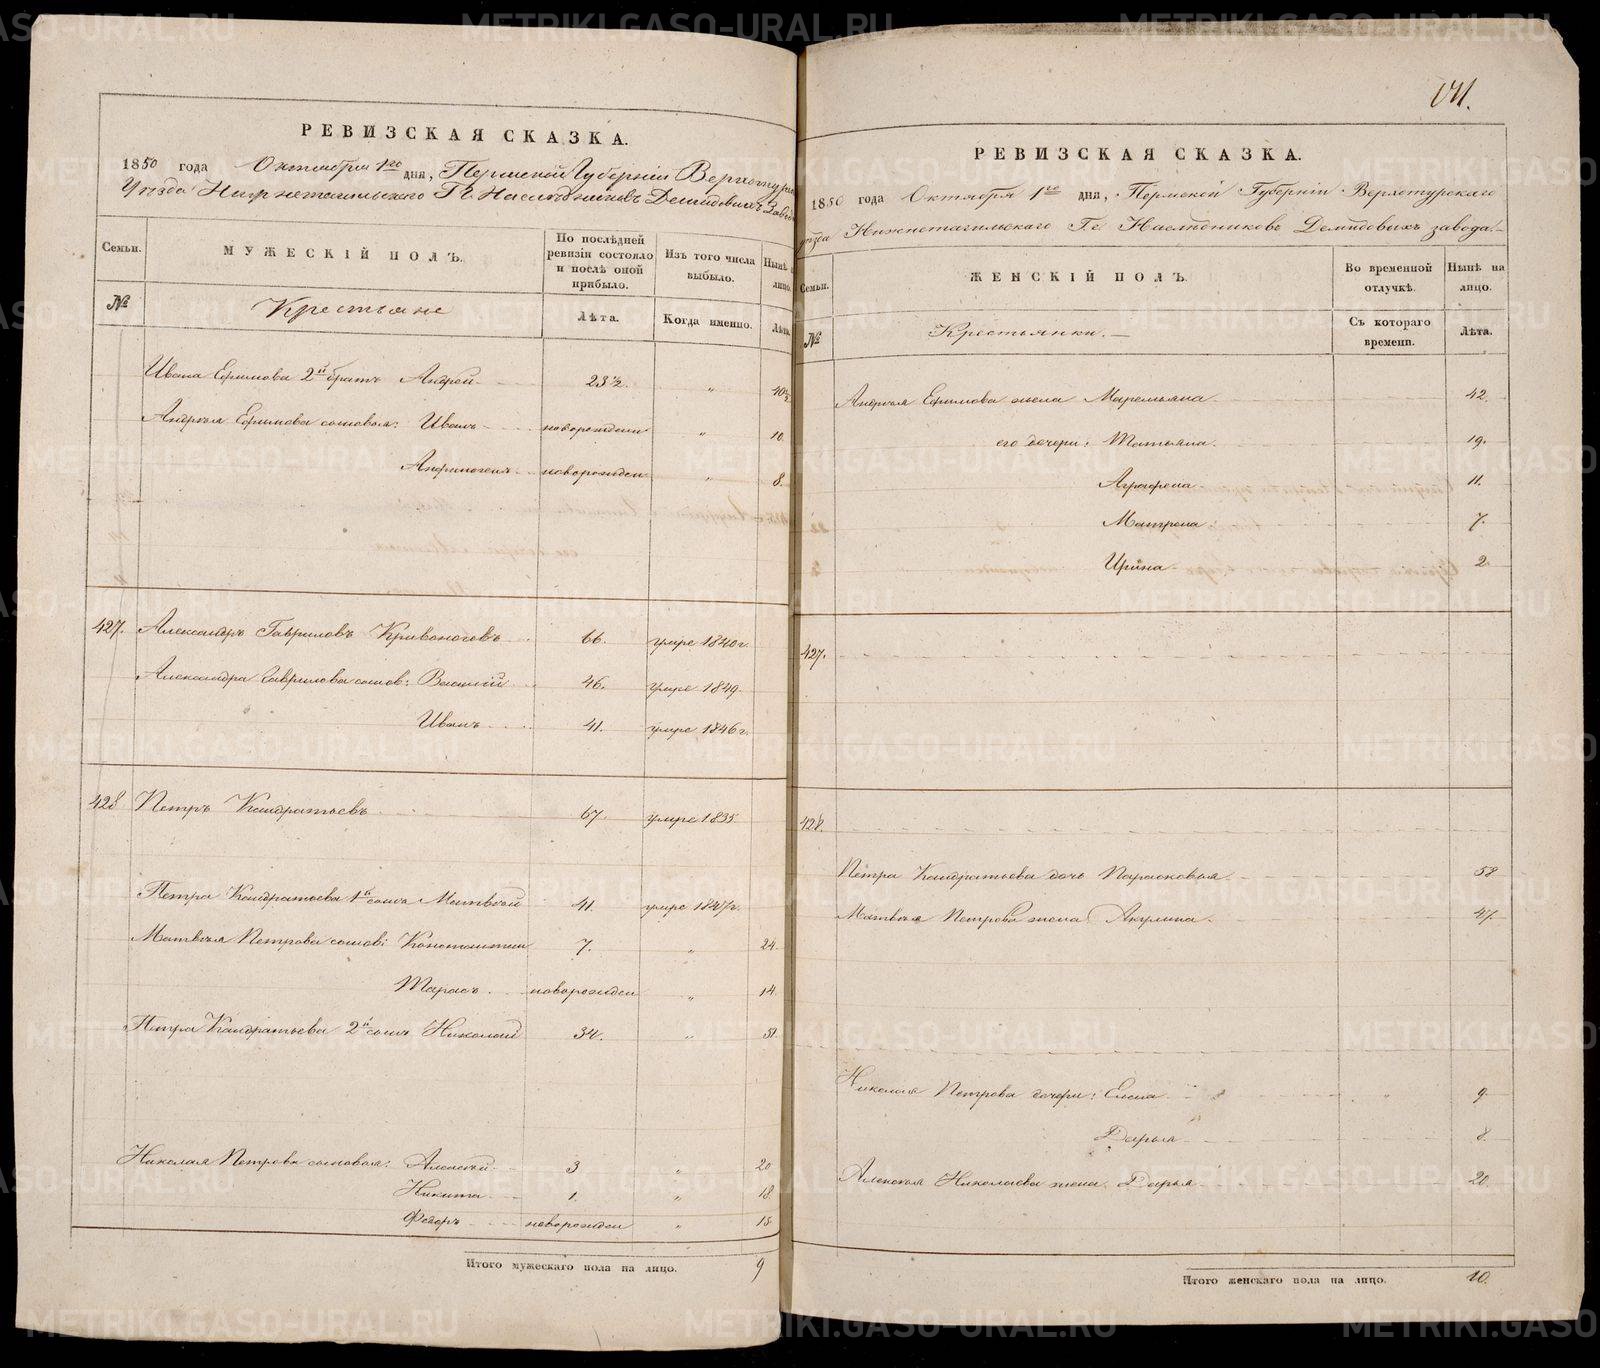 РЕВИЗСКАЯ СКАЗКА.
1850 года Октября 1го дня, Пермской Губернiи Верхотурс
Уѣзда Нижнетагильскаго Гг. Наслѣдниковъ Демидовыхъ Заво
Семьи.
МУЖЕСКIЙ ПОЛЪ.
По послѣдней ревизiи состояло и послѣ оной прибыло.
Изъ того числа выбыло.
Нынѣ на лицо.
№
Крестьяне
Лѣта.
Когда именно.
Лѣта.
Ивана Ефимова 2й братъ Андрей 23½. " 40½
Андрея Ефимова сыновья: Иванъ новорожден " 10
Анфиногенъ новорожден " 8.
427. Александръ Гавриловъ Кривоноговъ 66. умре 1840 г.
Александра Гаврилова сынов: Василiй 46. умре 1849
Иванъ 41. умре 1846 г.
428 Петръ Кандратьевъ 67. умре 1835.
Петра Кандратьева 1й сынъ Матвѣй 41. умре 1847 г.
Матвѣя Петрова сынов: Константин 7. " 24.
Тарасъ. новорожден " 14.
Петра Кандратьева 2й сынъ Николай 34. " 51.
Николая Петрова сыновья: Алексѣй 3 " 20
Никита 1. " 18
Федоръ новорожден " 15
Итого мужескаго пола на лицо. 9
141.
РЕВИЗСКАЯ СКАЗКА.
1850 года Октября 1го дня, Пермской Губернiи Верхотурскаго
уѣзда Нижнетагильскаго Гг. Наслѣдниковъ Демидовыхъ завода.
Семьи.
ЖЕНСКIЙ ПОЛЪ.
Во временной отлучкѣ.
Нынѣ на лицо.
№
Крестьянки.
Съ котораго времени.
Лѣта.
Андрея Ефимова жена Маремьяна 42.
его дочери: Татьяна. 19.
Аграфена 11.
Матрена 7.
Ирина 2.
427.
428.
Петра Кандратьева дочь Парасковья 58
Матвѣя Петрова жена Акулина. 47.
Николая Петрова дочери: Елена " 9.
Дарья 8.
Алексѣя Николаева жена Дарья 20.
Итого женскаго пола на лицо. 10.
METRIKI.GASO-URAL.RU